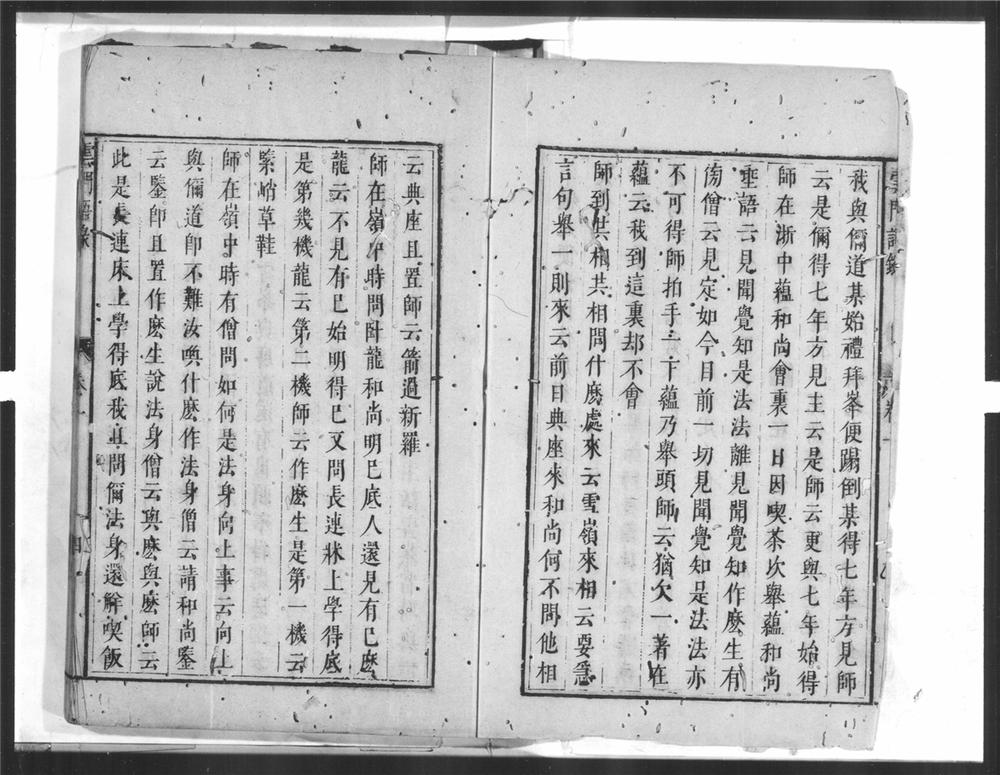 我與儞道某始禮拜峯便蹋倒某得七年方見師
云是儞得七年方見主云是師云更與七年始得
師在浙中蘊和尚會裏一日因喫茶次舉蘊和尚
垂語云見聞覺知是法法離見聞覺知作麽生有
傍僧云見定如今目前一切見聞覺知是法法亦
不可得師拍手三下蘊乃舉頭師云猶欠一著在
蘊云我到這裏却不會
師到共相共相問什麽處來云雪嶺來相云要急
言句舉一則來云前日典座來和尚何不問他相
云典座且置師云箭過新羅
師在嶺中時問臥龍和尚明巳底人還見有巳麽
龍云不見有巳始明得巳又問長連牀上學得底
是第幾機龍云第二機師云作麽生是第一機云
緊峭草鞋
師在嶺中時有僧問如何是法身向上事云向上
與儞道卽不難汝喚什麽作法身僧云請和尚鑒
云鑒卽且置作麽生說法身僧云與麽與麽師云
此是長連床上學得底我且問儞法身還解喫飯
雲門語錄
卷一
四